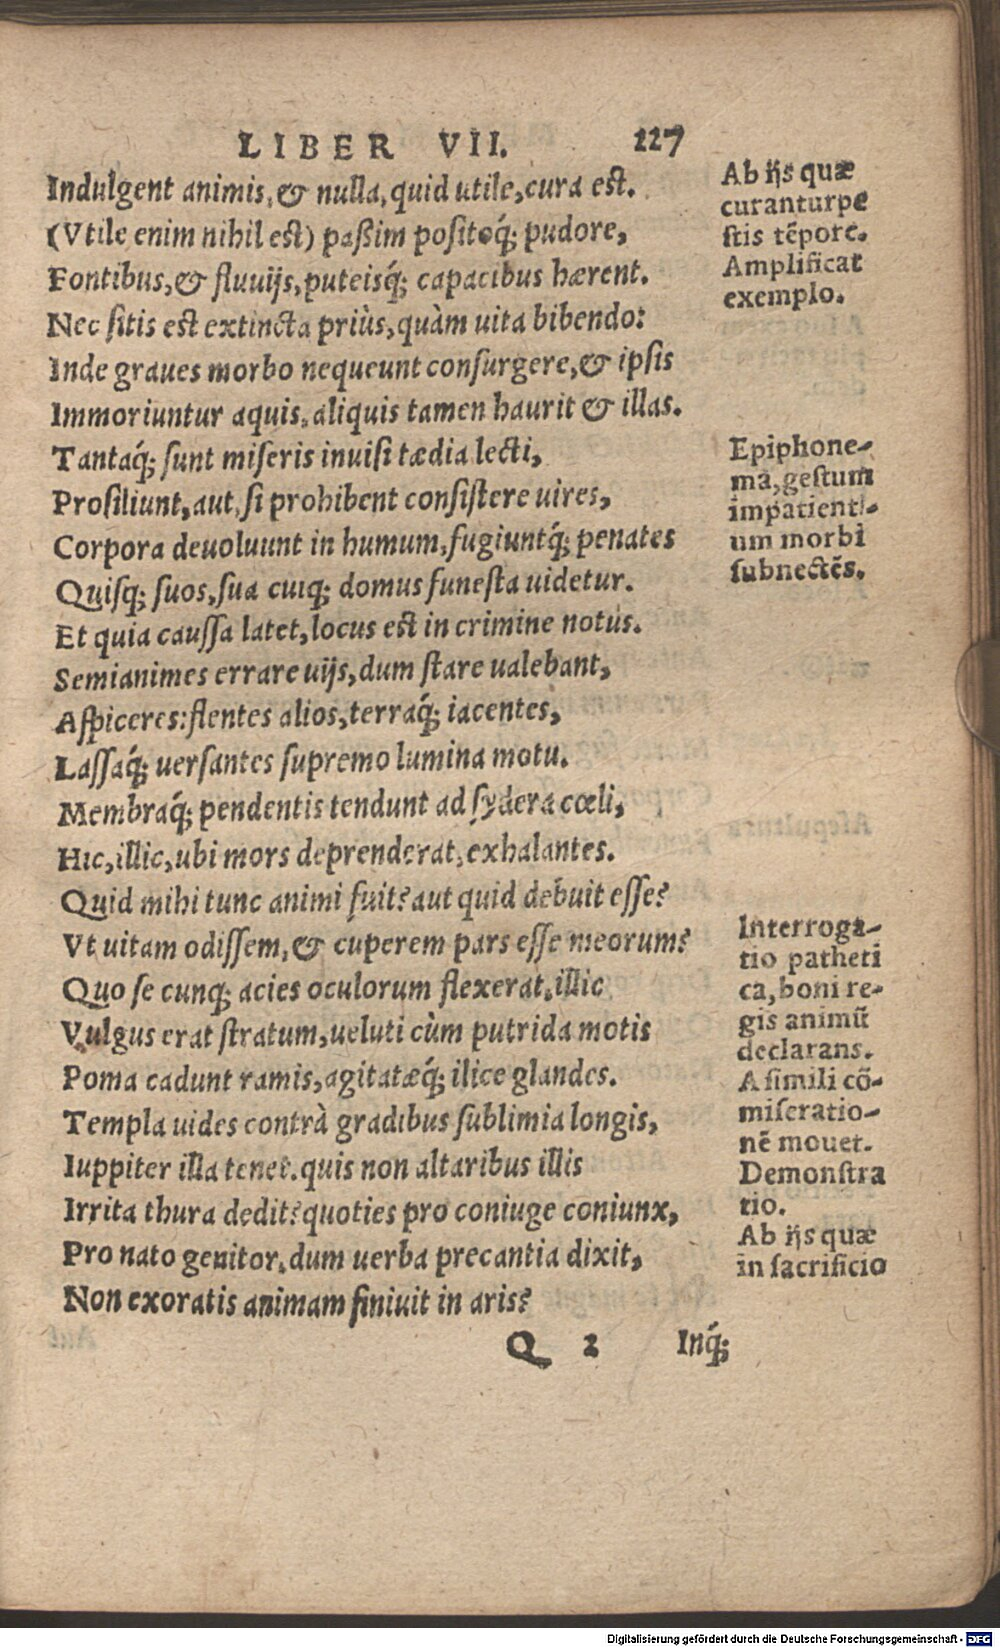 LIBER VII. 127
Indulgent animis, & nulla, quid utile, cura est.
(Vtile enim nihil est) paßim positoq́; pudore,
Fontibus, & fluuijs, puteisq́; capacibus hærent.
Nec sitis est extincta priùs, quàm uita bibendo:
Inde graues morbo nequeunt consurgere, & ipsis
Immoriuntur aquis, aliquis tamen haurit & illas.
Tantaq́; sunt miseris inuisi tædia lecti,
Prosiliunt, aut, si prohibent consistere uires,
Corpora deuoluunt in humum, fugiuntq́; penates
Quisq; suos, sua cuiq; domus funesta uidetur.
Et quia caussa latet, locus est in crimine notus.
Semianimes errare uijs, dum stare ualebant,
Aspiceres: flentes alios, terraq́; iacentes,
Lassaq́; uersantes supremo lumina motu.
Membraq́; pendentis tendunt ad sydera cœli,
Hic, illic, ubi mors deprenderat, exhalantes.
Quid mihi tunc animi fuit? aut quid debuit esse?
Vt uitam odissem, & cuperem pars esse meorum?
Quo se cunq; acies oculorum flexerat, illic
Vulgus erat stratum, ueluti cùm putrida motis
Poma cadunt ramis, agitatæq́; ilice glandes.
Templa uides contrà gradibus sublimia longis,
Iuppiter illa tenet. quis non altaribus illis
Irrita thura dedit? quoties pro coniuge coniunx,
Pro nato genitor, dum uerba precantia dixit,
Non exoratis animam finiuit in aris?
Q 2 Inq́;
Ab ijs quæ
curantur pe
stis tẽpore.
Amplificat
exemplo.
Epiphone-
ma, gestum
impatienti-
um morbi
subnectẽs.
Interroga-
tio patheti
ca, boni re-
gis animũ
declarans.
A simili cõ-
miseratio-
nẽ mouet.
Demonstra
tio.
Ab ijs quæ
in sacrificio
Digitalisierung gefördert durch die Deutsche Forschungsgemeinschaft - DFG